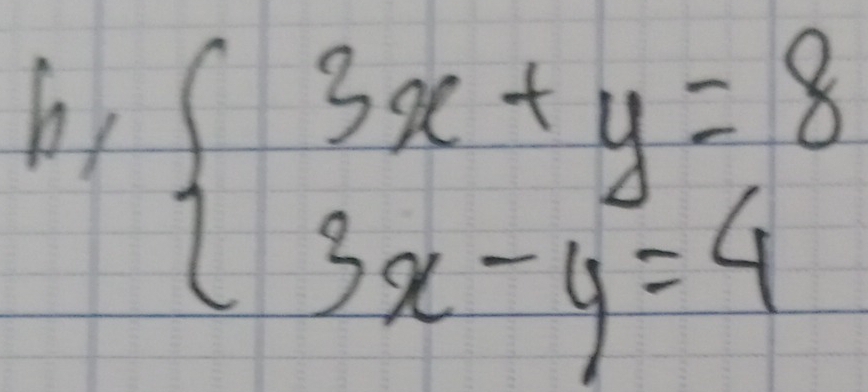 h, { 3x + y = 8
3x - y = 4